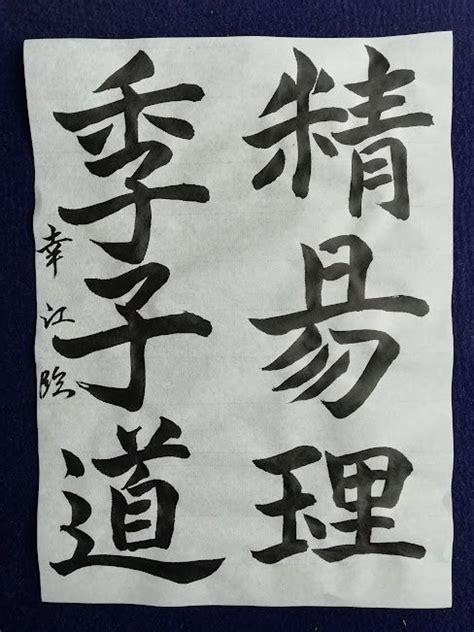 精易理
季子道
幸江臨